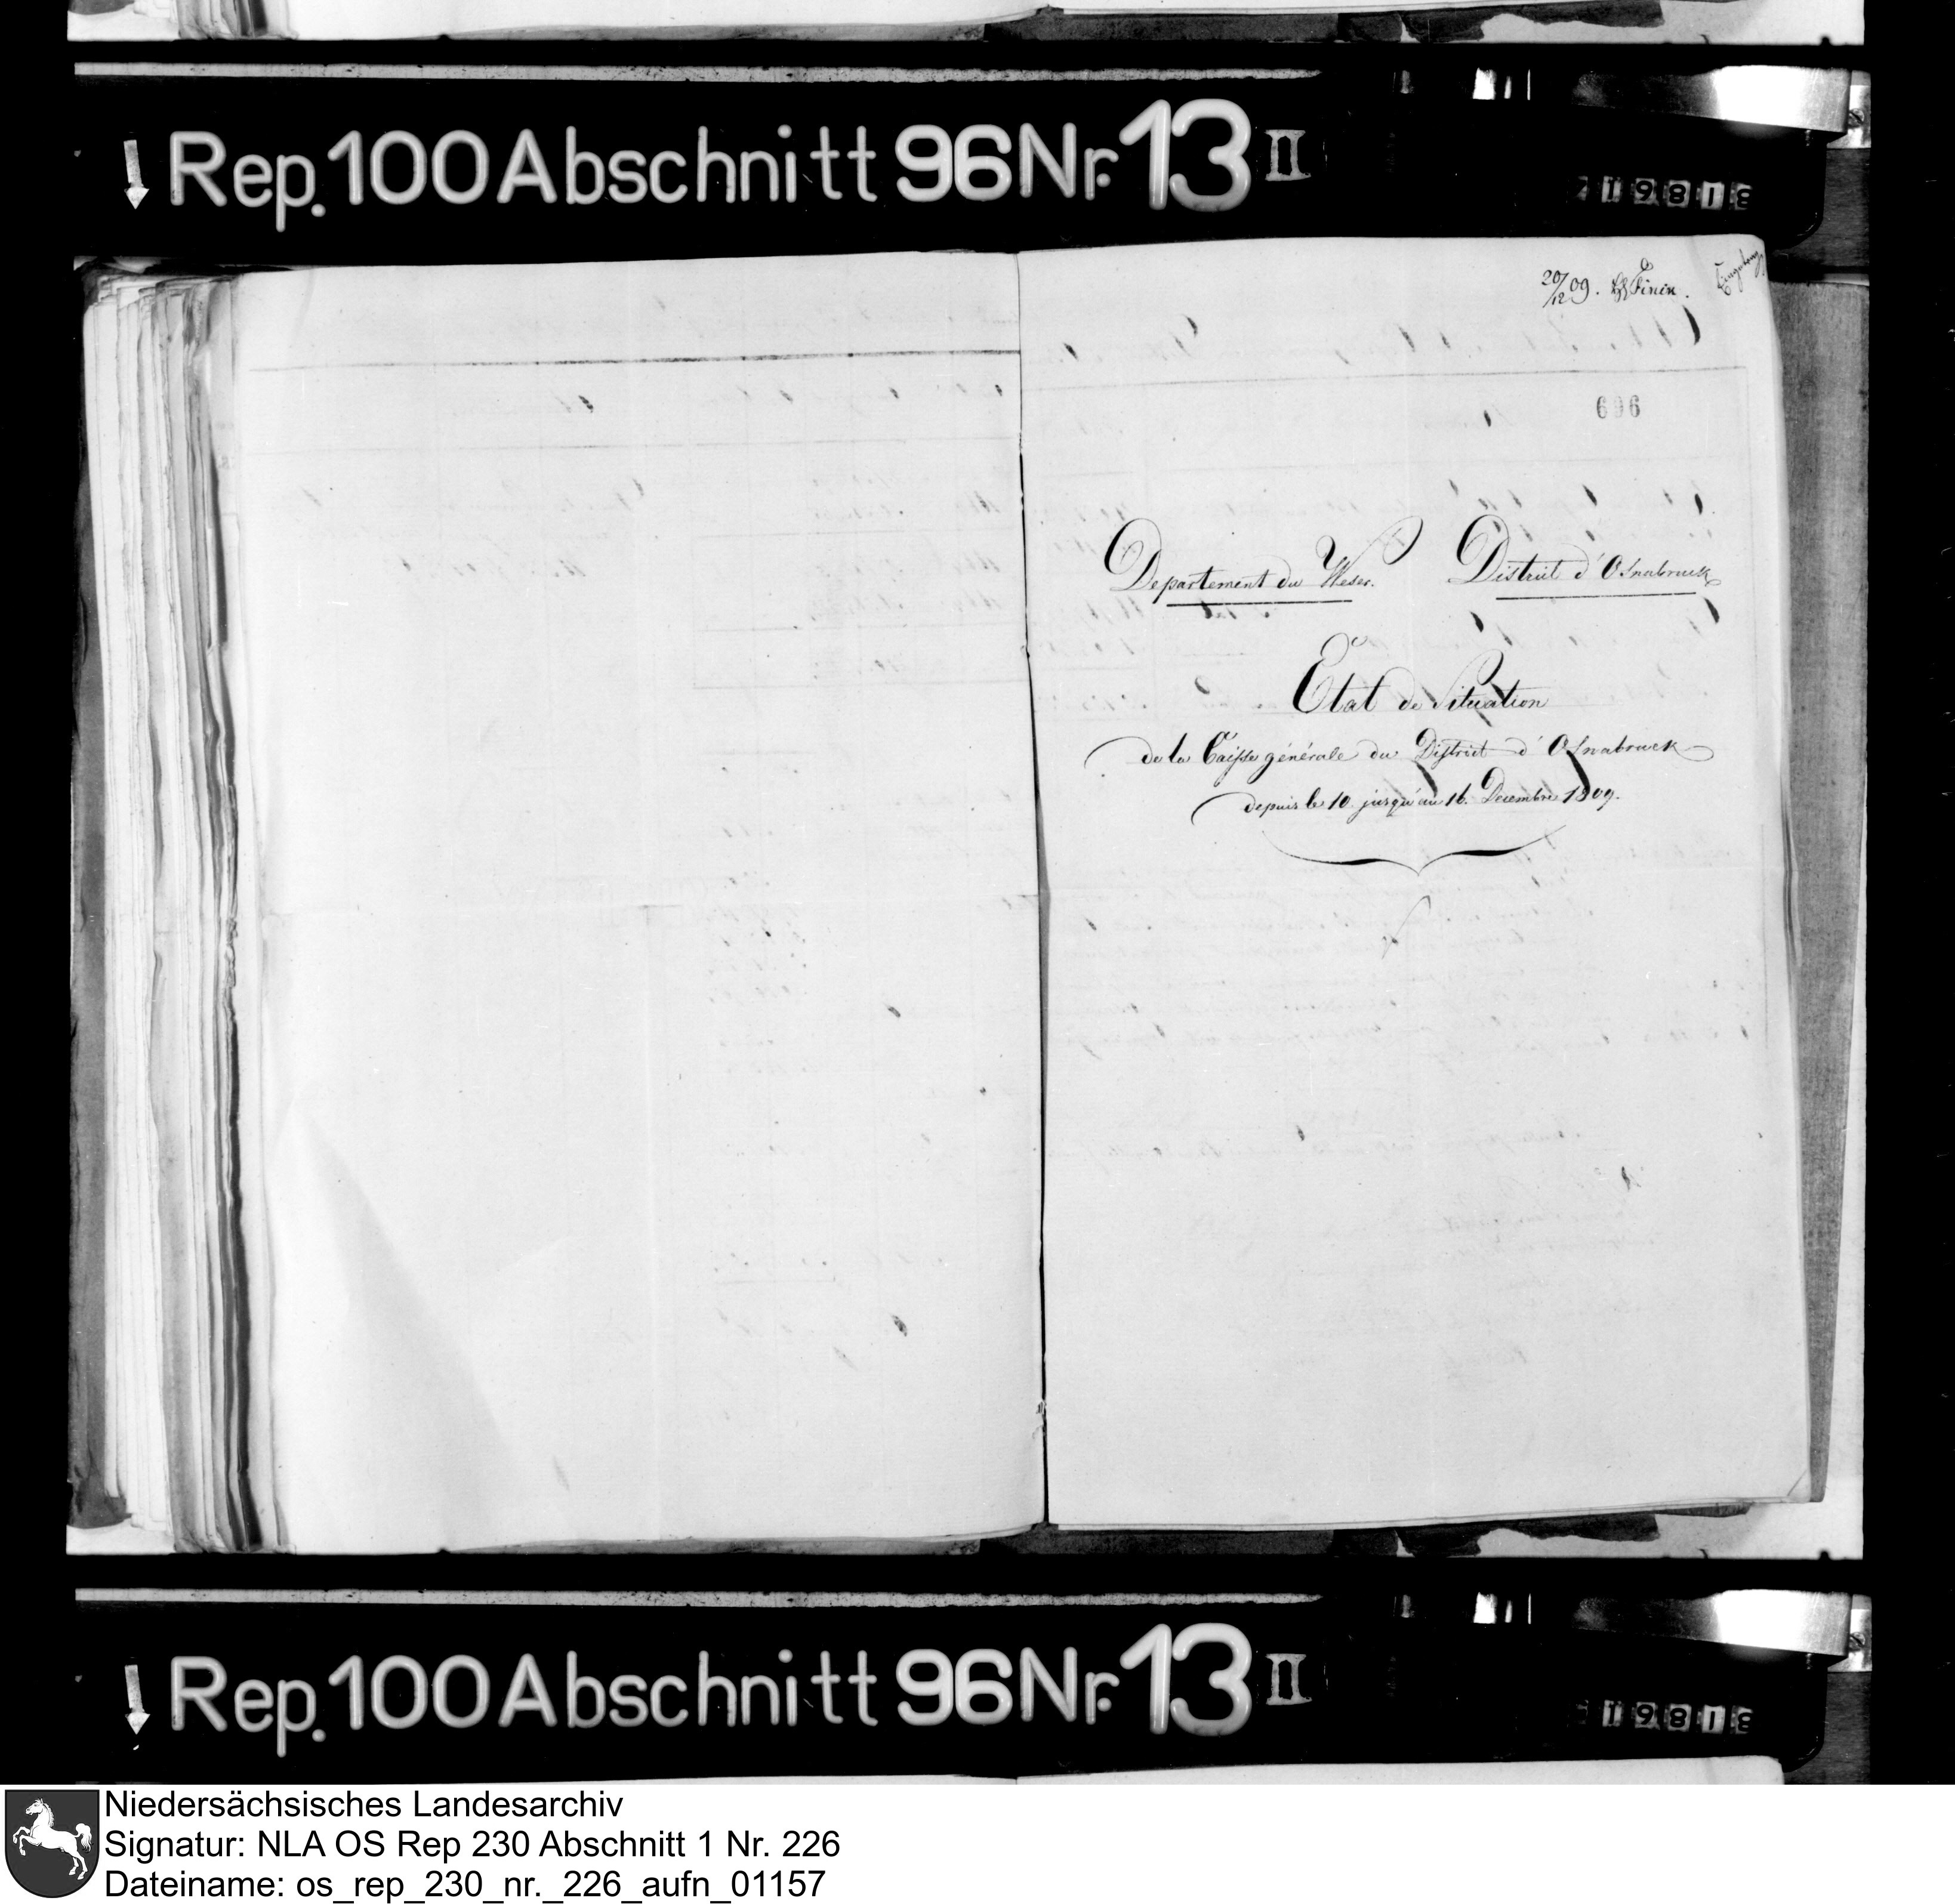 Rep. 100 Abschnitt 96 Nr. 13 II
1981
20/12 09.
696
Departement du Weser. District d'Osnabruck
État de Situation
de la Caisse générale du District d'Osnabruck
depuis le 10. jusqu'au 16. Decembre 1809.
Rep. 100 Abschnitt 96 Nr. 13 II
1981
Niedersächsisches Landesarchiv
Signatur: NLA OS Rep 230 Abschnitt 1 Nr. 226
Dateiname: os_rep_230_nr._226_aufn_01157